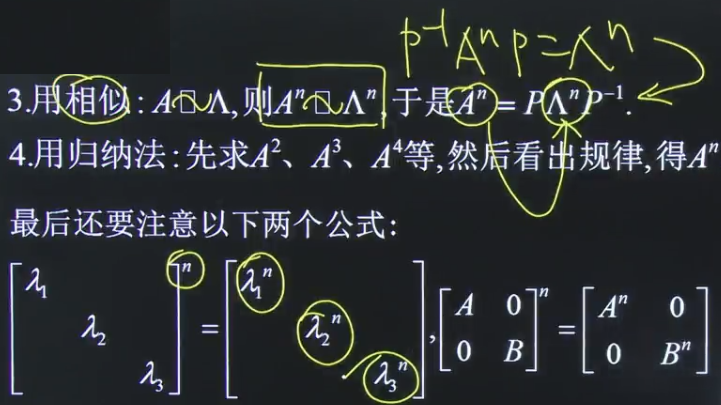 P⁻¹AⁿP=Λⁿ
3.用相似:A~Λ,则Aⁿ~Λⁿ,于是Aⁿ=PΛⁿP⁻¹.
4.用归纳法:先求A²、A³、A⁴等,然后看出规律,得Aⁿ
最后还要注意以下两个公式:
[λ₁ λ₂ λ₃]ⁿ = [λ₁ⁿ λ₂ⁿ λ₃ⁿ], [A 0 0 B]ⁿ = [Aⁿ 0 0 Bⁿ]